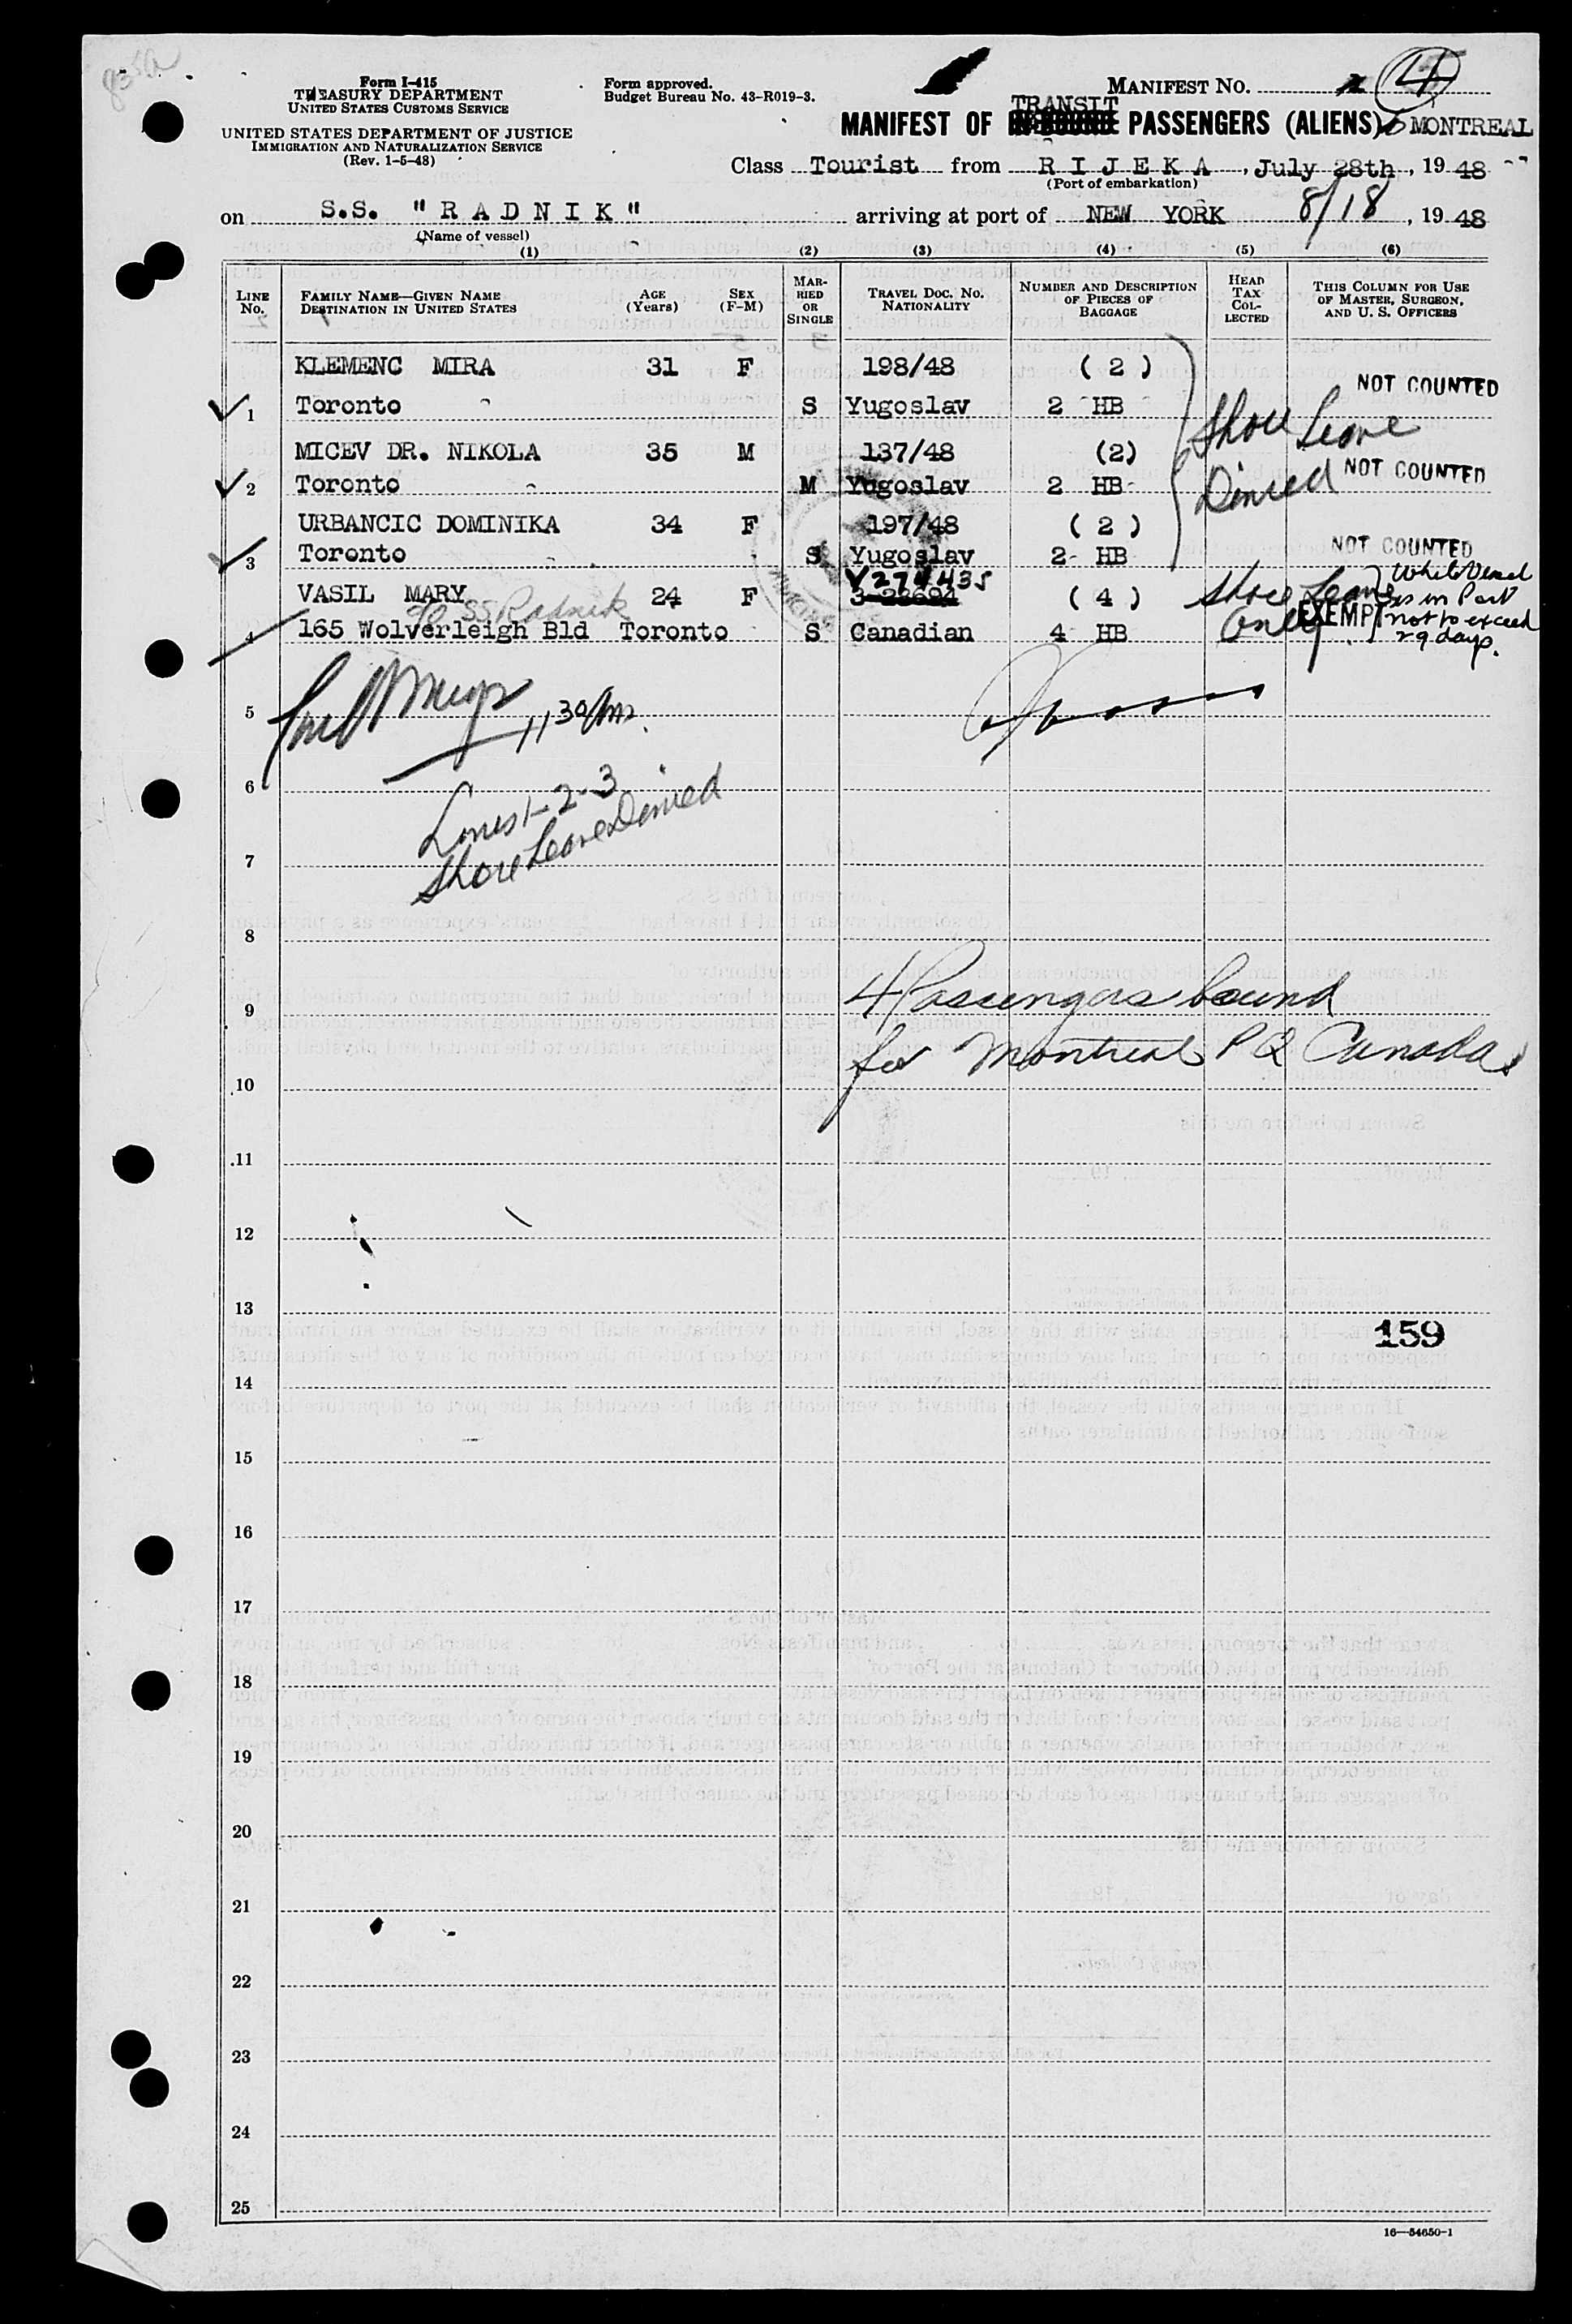 Form I-415
TREASURY DEPARTMENT
UNITED STATES CUSTOMS SERVICE
UNITED STATES DEPARTMENT OF JUSTICE
IMMIGRATION AND NATURALIZATION SERVICE
(Rev. 1-5-48)
Form approved.
Budget Bureau No. 43-R019-3.
MANIFEST NO. 4
MANIFEST OF TRANSIT PASSENGERS (ALIENS) to MONTREAL
Class Tourist from R I J E K A, July 28th, 19 48
(Port of embarkation)
on S.S. "R A D N I K" arriving at port of NEW YORK 8/18, 19 48
(Name of vessel)
(1) (2) (3) (4) (5) (6)
LINE NO. FAMILY NAME—GIVEN NAME DESTINATION IN UNITED STATES AGE (Years) SEX (F-M) MARRIED OR SINGLE TRAVEL DOC. NO. NATIONALITY NUMBER AND DESCRIPTION OF PIECES OF BAGGAGE HEAD TAX COLLECTED THIS COLUMN FOR USE OF MASTER, SURGEON, AND U. S. OFFICERS
KLEMENC MIRA 31 F 198/48 ( 2 ) NOT COUNTED
1 Toronto S Yugoslav 2 HB Shore Leave
MICEV DR. NIKOLA 35 M 137/48 (2) NOT COUNTED
2 Toronto M Yugoslav 2 HB Denied
URBANCIC DOMINIKA 34 F 197/48 ( 2 )
3 Toronto S Yugoslav 2 HB NOT COUNTED
V274435
VASIL MARY 24 F 3-23694 ( 4 ) Shore Leave while Vessel
SS Radnik
4 165 Wolverleigh Bld Toronto S Canadian 4 HB Only EXEMPT is in Port
not to exceed
29 days.
5
11 30 Am
6
Lines 1-2-3
Shore Leave Denied
7
8
4 Passengers bound
9
for Montreal P Q Canada
10
11
12
13
159
14
15
16
17
18
19
20
21
22
23
24
25
16—54650-1